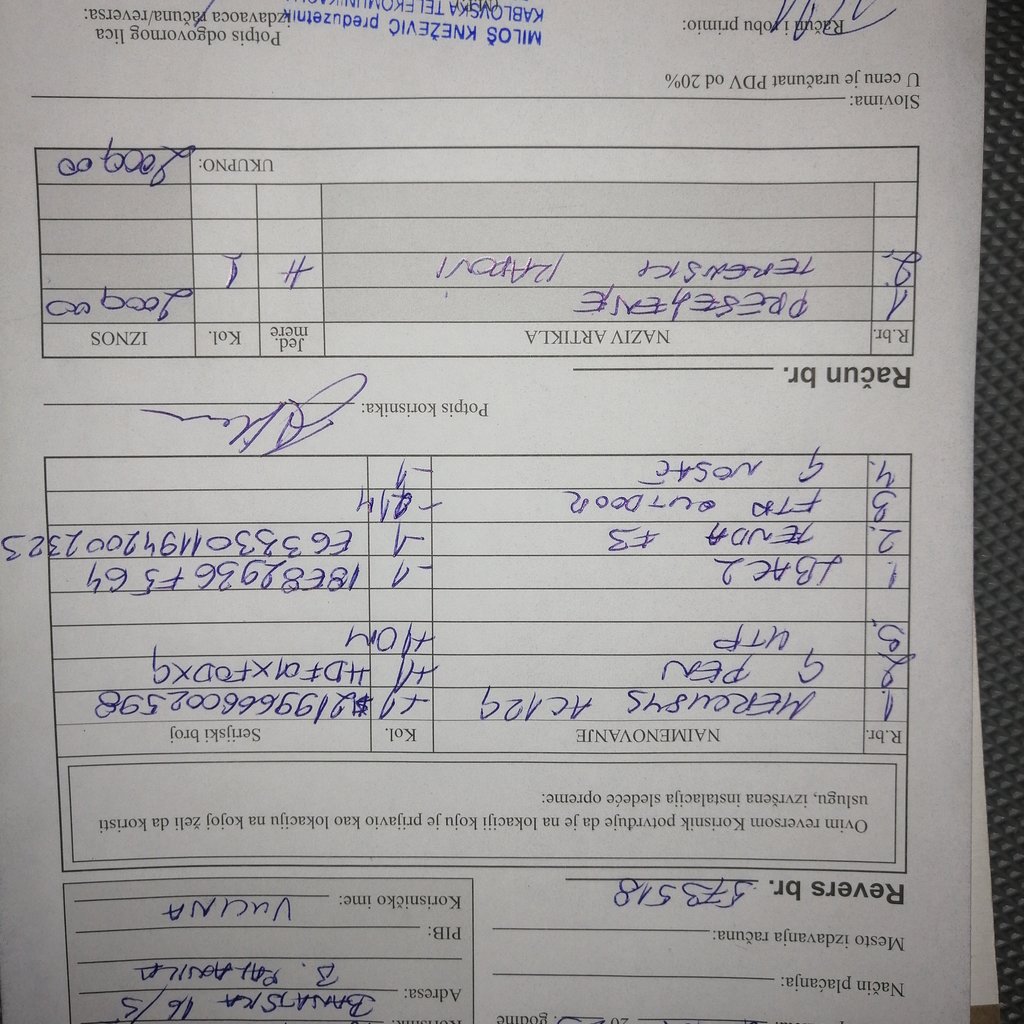 20 . godine
Adresa: BANATSKA 16/5
B. PALANKA
Način plaćanja:
PIB:
Mesto izdavanja računa:
Korisničko ime: VUCINA
Revers br. 573518
Ovim reversom Korisnik potvrđuje da je na lokaciji koju je prijavio kao lokaciju na kojoj želi da koristi
uslugu, izvršena instalacija sledeće opreme:
R.br. NAIMENOVANJE Kol. Serijski broj
1 MERCUSYS AC12G +1 2199666002598
2. G PEN +1
3. UTP +10M
1. LBAC2 -1 18E82936F564
2. TENDA F3 -1 E6383011942002323
3 FTP OUTDOOR
4. G NOSAČ -1
Potpis korisnika:
Račun br.
R.br. NAZIV ARTIKLA Jed. mere Kol. IZNOS
1 PRESELJENJE 2000,00
2. TERENSKI RADOVI H 1
UKUPNO: 2000,00
Slovima:
U cenu je uračunat PDV od 20%
Račun i robu primio:
Potpis odgovornog lica
izdavaoca računa/reversa:
MILOŠ KNEŽEVIĆ preduzetnik